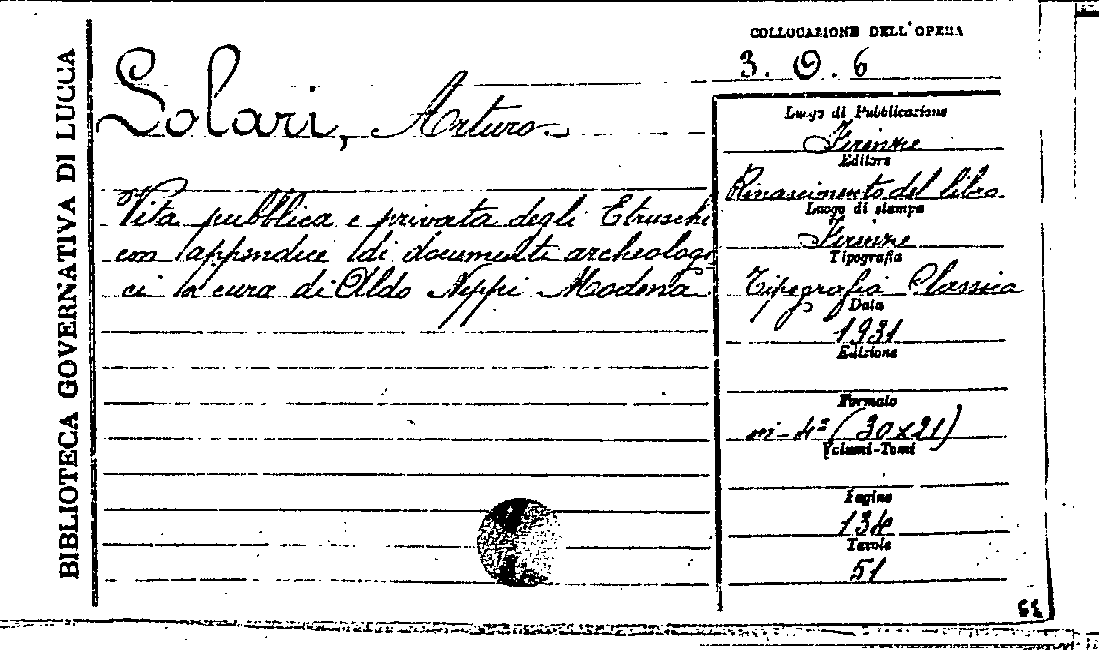 BIBLIOTECA GOVERNATIVA DI LUCCA
COLLOCAZIONE DELL'OPERA
3. O. 6
Solari, Arturo
Vita pubblica e privata degli Etruschi
con appendice di documenti archeologi
ci a cura di Aldo Neppi Modena
Luogo di Pubblicazione
Firenze
Editore
Rinascimento del libro
Luogo di stampa
Firenze
Tipografia
Tipografia Classica
Data
1931
Edizione
Formato
in-4º (30x21)
Volumi-Tomi
Pagine
134
Tavole
51